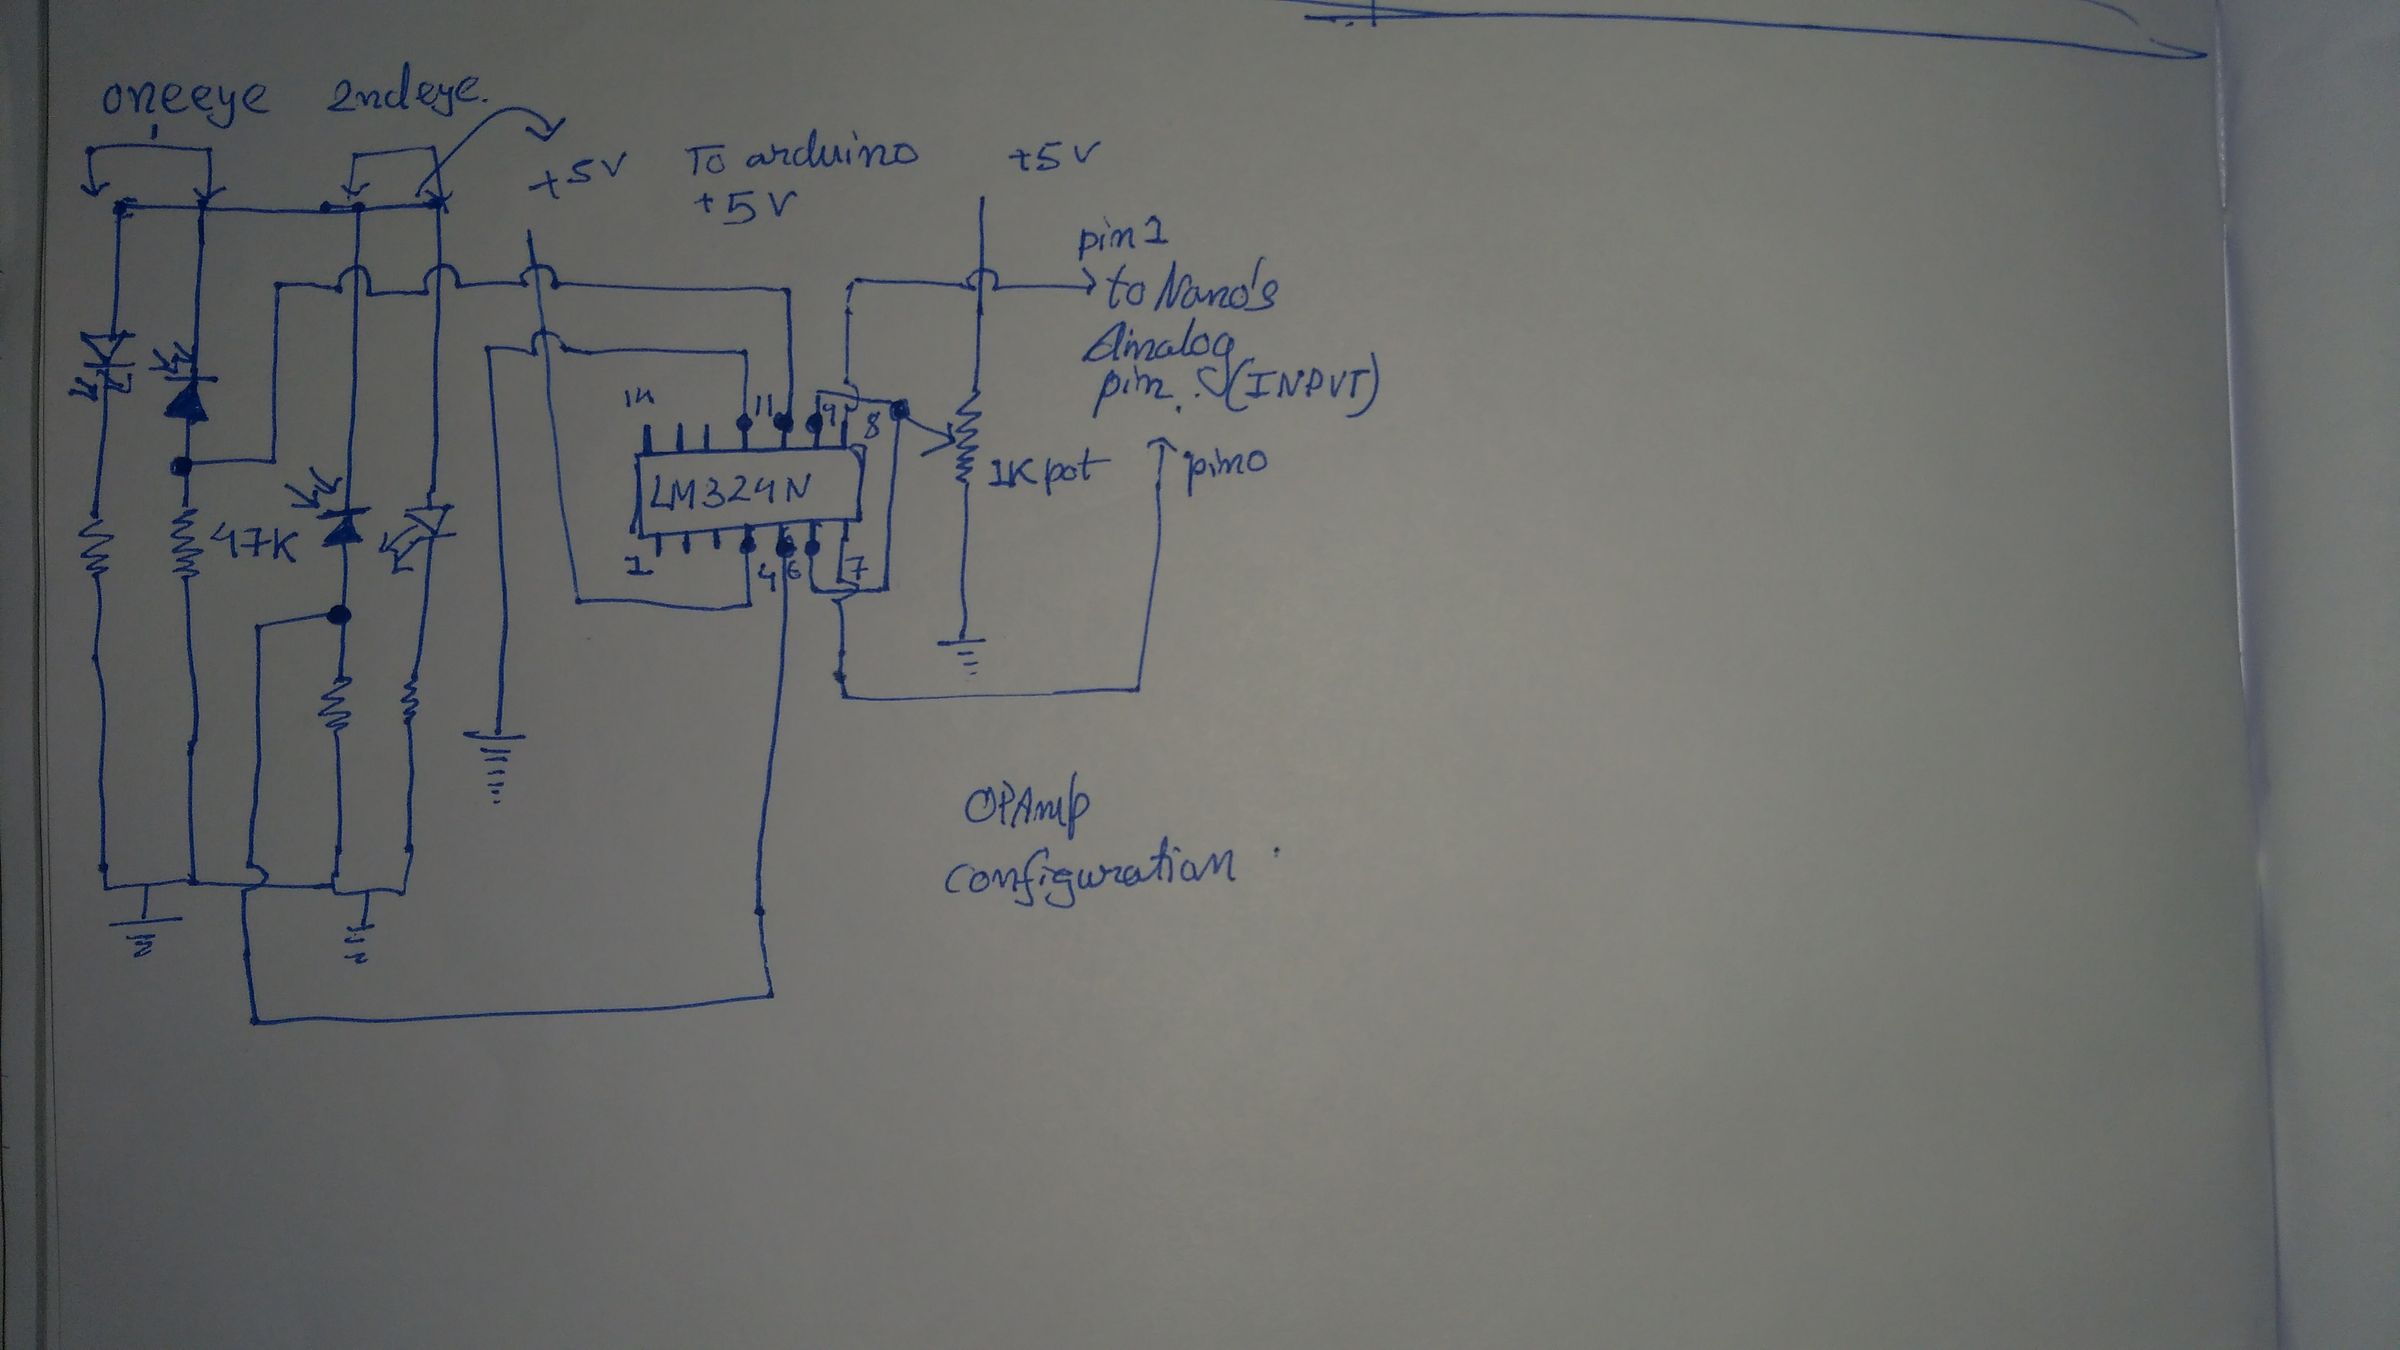 oneeye 2ndeye.
+5V To arduino +5V
+5V
+5V
pin 1
to Nano's
Analog
pin. (INPUT)
14 11 9 8
LM324N
1 4 6 7
47K
1K pot
pin 0
OPAmp
configuration